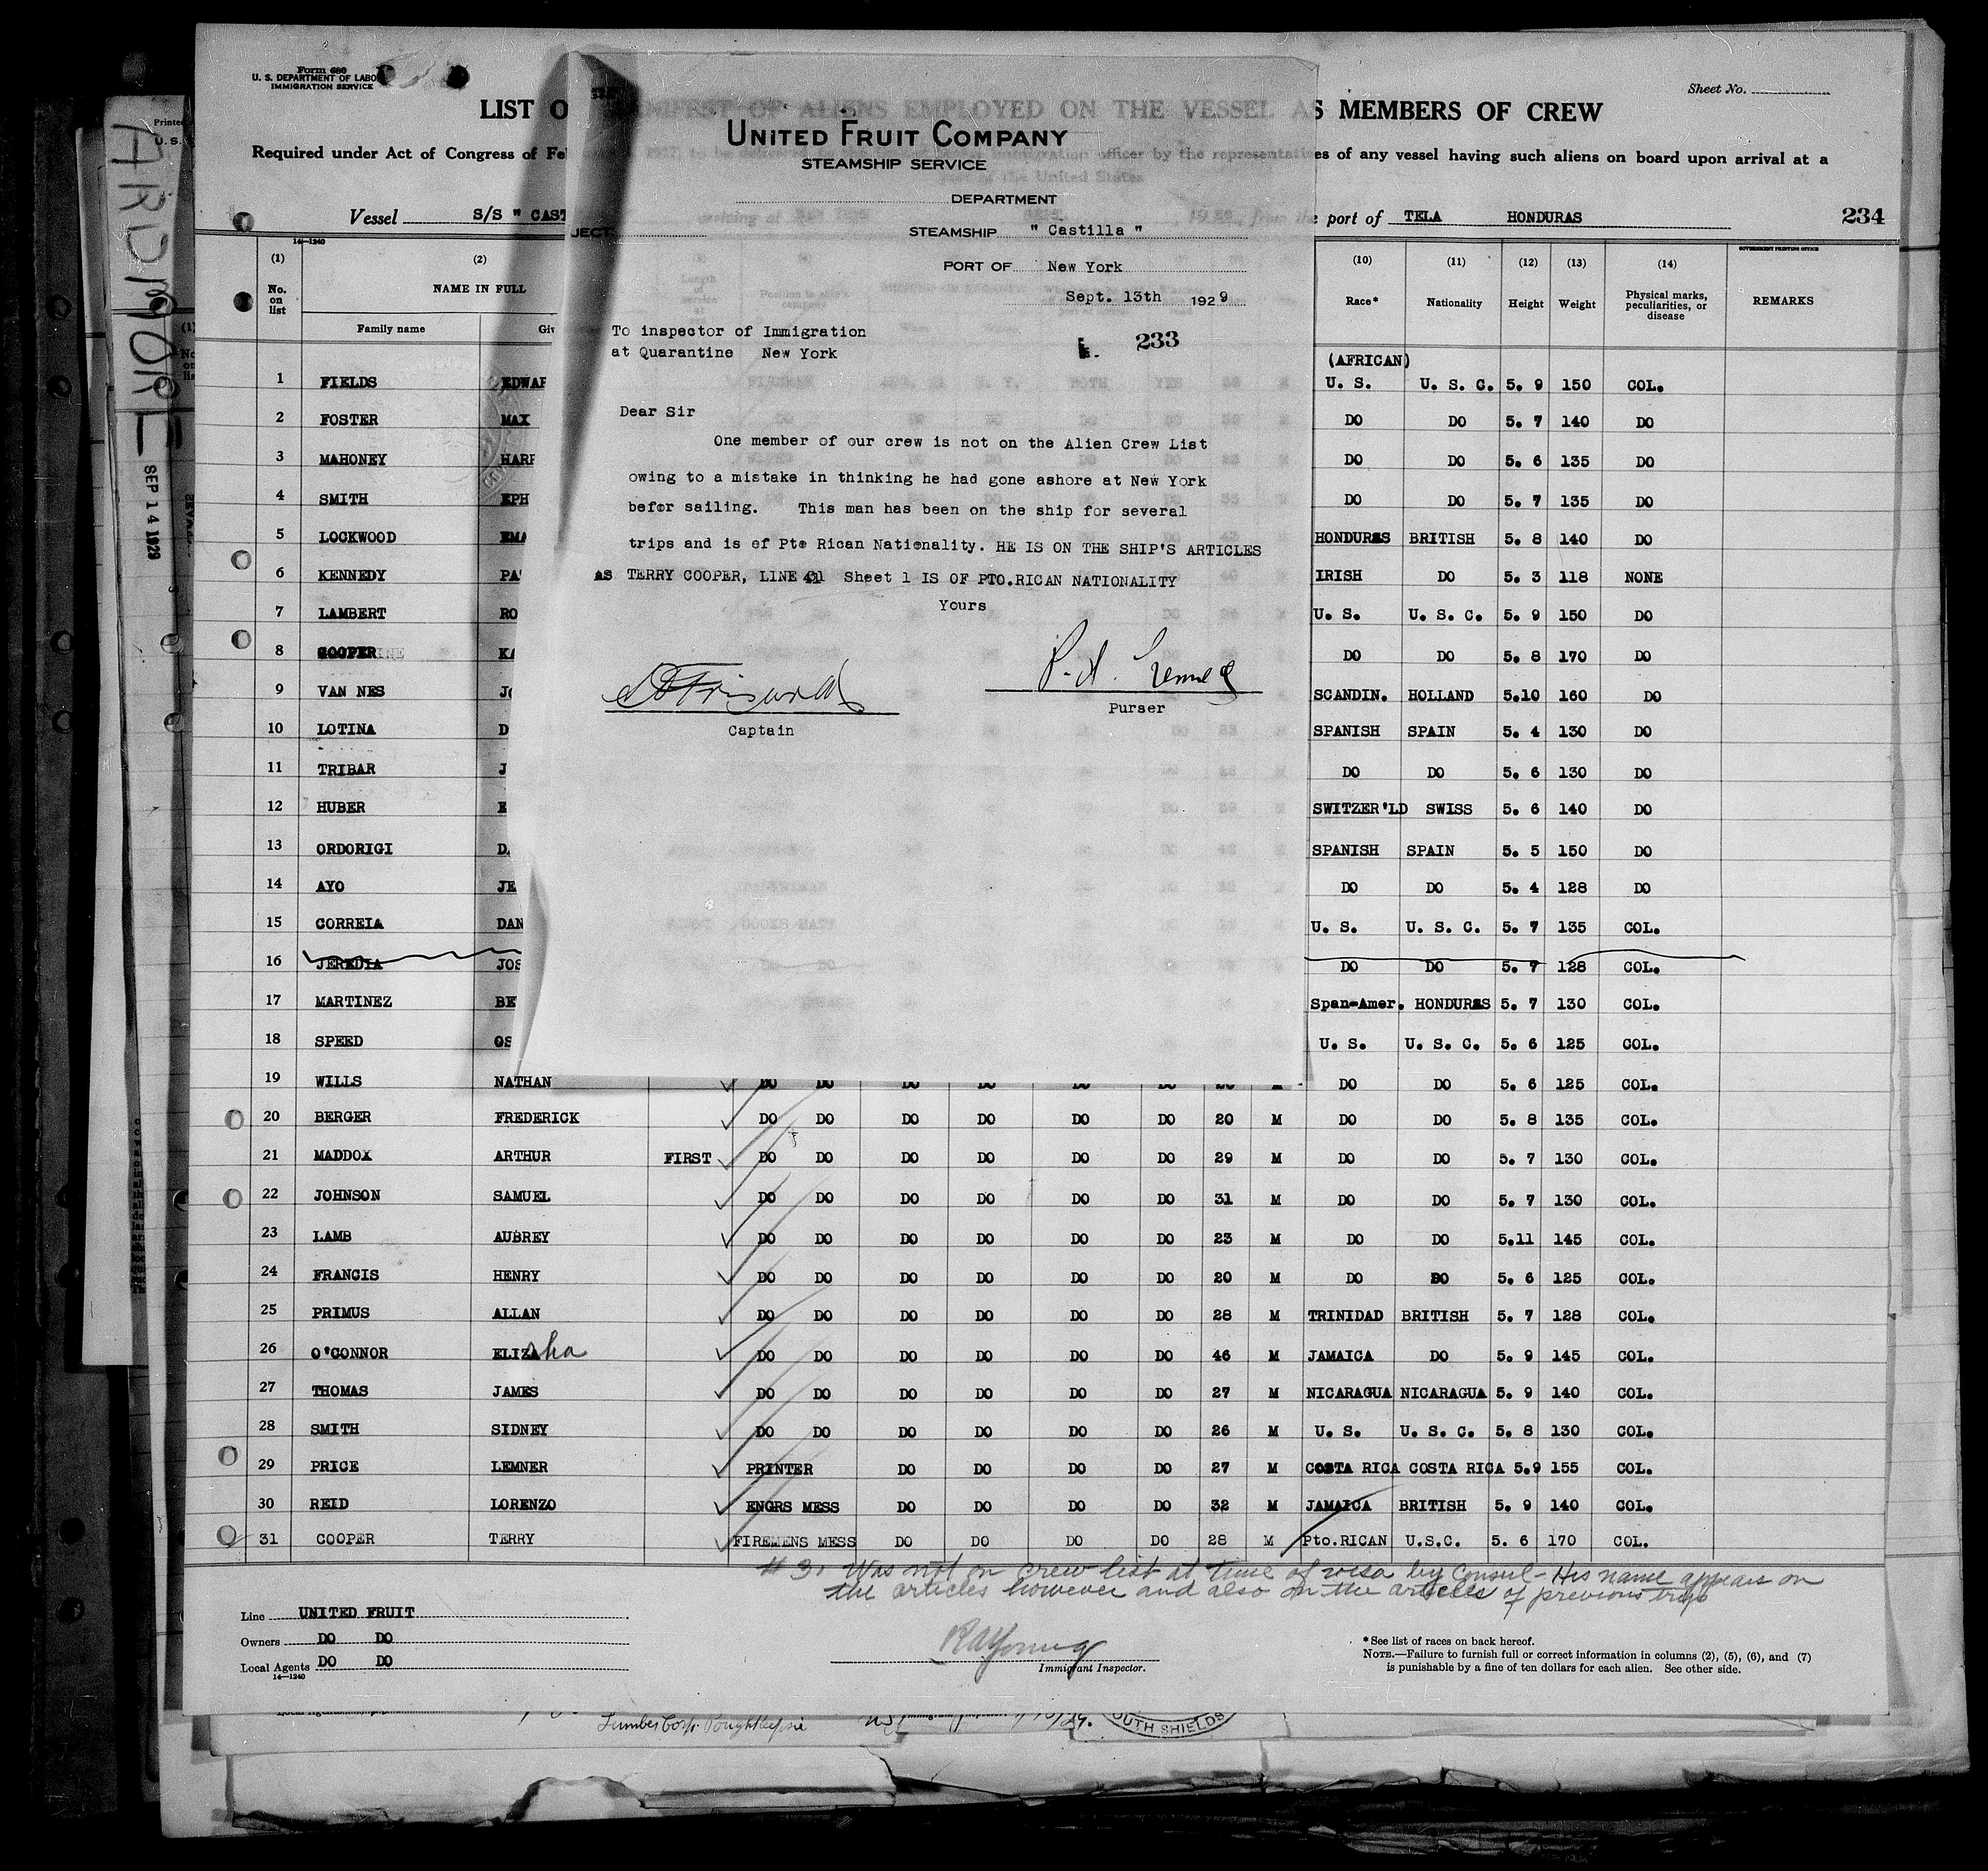 Form 680
U. S. DEPARTMENT OF LABO
IMMIGRATION SERVICE
Sheet No.
LIST O
MANIFEST OF ALIENS EMPLOYED ON THE VESSEL AS MEMBERS OF CREW
Required under Act of Congress of Fe
es of any vessel having such aliens on board upon arrival at a
Vessel S/S " CAST
port of TELA HONDURAS 234
ARDMORE
SEP 14 1929
UNITED FRUIT COMPANY
STEAMSHIP SERVICE
DEPARTMENT
JECT
STEAMSHIP " Castilla "
PORT OF New York
Sept. 13th 1929
To inspector of Immigration
at Quarantine New York
233
Dear Sir
One member of our crew is not on the Alien Crew List
owing to a mistake in thinking he had gone ashore at New York
befor sailing. This man has been on the ship for several
trips and is of Pto Rican Nationality. HE IS ON THE SHIP'S ARTICLES
AS TERRY COOPER, LINE 41 Sheet 1 IS OF PTO.RICAN NATIONALITY
Yours
Captain
Purser
14—1240
GOVERNMENT PRINTING OFFICE
(1) (2) (10) (11) (12) (13) (14)
No. on list NAME IN FULL Race* Nationality Height Weight Physical marks, peculiarities, or disease REMARKS
Family name Giv
(AFRICAN)
1 FIELDS EDWAR U. S. U. S. C. 5. 9 150 COL.
2 FOSTER MAX DO DO 5. 7 140 DO
3 MAHONEY HARR DO DO 5. 6 135 DO
4 SMITH EPH DO DO 5. 7 135 DO
5 LOCKWOOD EMA HONDURAS BRITISH 5. 8 140 DO
6 KENNEDY PA IRISH DO 5. 3 118 NONE
7 LAMBERT RO U. S. U. S. C. 5. 9 150 DO
8 COOPER KA DO DO 5. 8 170 DO
9 VAN NES JO SCANDIN. HOLLAND 5.10 160 DO
10 LOTINA D SPANISH SPAIN 5. 4 130 DO
11 TRIBAR J DO DO 5. 6 130 DO
12 HUBER E SWITZER'LD SWISS 5. 6 140 DO
13 ORDORIGI DA SPANISH SPAIN 5. 5 150 DO
14 AYO JE DO DO 5. 4 128 DO
15 CORREIA DAN U. S. U. S. C. 5. 7 135 COL.
16 JEREDIA JOS DO DO 5. 7 128 COL.
17 MARTINEZ BE Span-Amer. HONDURAS 5. 7 130 COL.
18 SPEED OS U. S. U. S. C. 5. 6 125 COL.
19 WILLS NATHAN DO DO DO DO DO DO M DO DO 5. 6 125 COL.
20 BERGER FREDERICK DO DO DO DO DO DO 20 M DO DO 5. 8 135 COL.
21 MADDOX ARTHUR FIRST DO DO DO DO DO DO 29 M DO DO 5. 7 130 COL.
22 JOHNSON SAMUEL DO DO DO DO DO DO 31 M DO DO 5. 7 130 COL.
23 LAMB AUBREY DO DO DO DO DO DO 23 M DO DO 5.11 145 COL.
24 FRANCIS HENRY DO DO DO DO DO DO 20 M DO DO 5. 6 125 COL.
25 PRIMUS ALLAN DO DO DO DO DO DO 28 M TRINIDAD BRITISH 5. 7 128 COL.
26 O'CONNOR ELIZAsha DO DO DO DO DO DO 46 M JAMAICA DO 5. 9 145 COL.
27 THOMAS JAMES DO DO DO DO DO DO 27 M NICARAGUA NICARAGUA 5. 9 140 COL.
28 SMITH SIDNEY DO DO DO DO DO DO 26 M U. S. U. S. C. 5. 8 130 COL.
29 PRICE LEMNER PRINTER DO DO DO DO 27 M COSTA RICA COSTA RICA 5.9 155 COL.
30 REID LORENZO ENGRS MESS DO DO DO DO 32 M JAMAICA BRITISH 5. 9 140 COL.
31 COOPER TERRY FIREMENS MESS DO DO DO DO 28 M Pto.RICAN U.S.C. 5. 6 170 COL.
# 31 Was not on crew list at time of visa by Consul - His name appears on
the articles however and also on the articles of previous trips
Line UNITED FRUIT
Owners DO DO
Local Agents DO DO
14—1240
RA Young
Immigrant Inspector.
* See list of races on back hereof.
NOTE.—Failure to furnish full or correct information in columns (2), (5), (6), and (7)
is punishable by a fine of ten dollars for each alien. See other side.
Lumber Corp. Poughkeepsie
OUTH SHIELDS